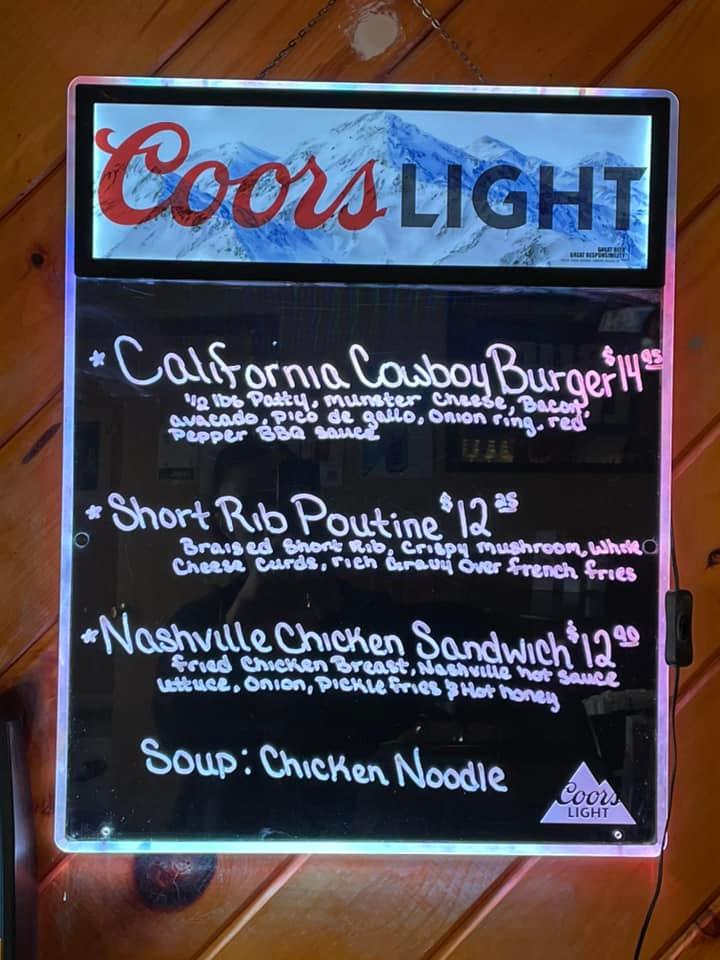 Coors LIGHT
GREAT BEER
GREAT RESPONSIBILITY
* California Cowboy Burger $14 95
1/2 lbs Patty, munster Cheese, Bacon,
avacado, pico de gallo, Onion ring, red
Pepper BBQ sauce
* Short Rib Poutine $12 25
Braised Short Rib, Crispy mushroom, White
Cheese Curds, rich Gravy Over french fries
* Nashville Chicken Sandwich $12 90
fried Chicken Breast, Nashville hot sauce
lettuce, Onion, Pickle fries & Hot honey
Soup: Chicken Noodle
Coors
LIGHT